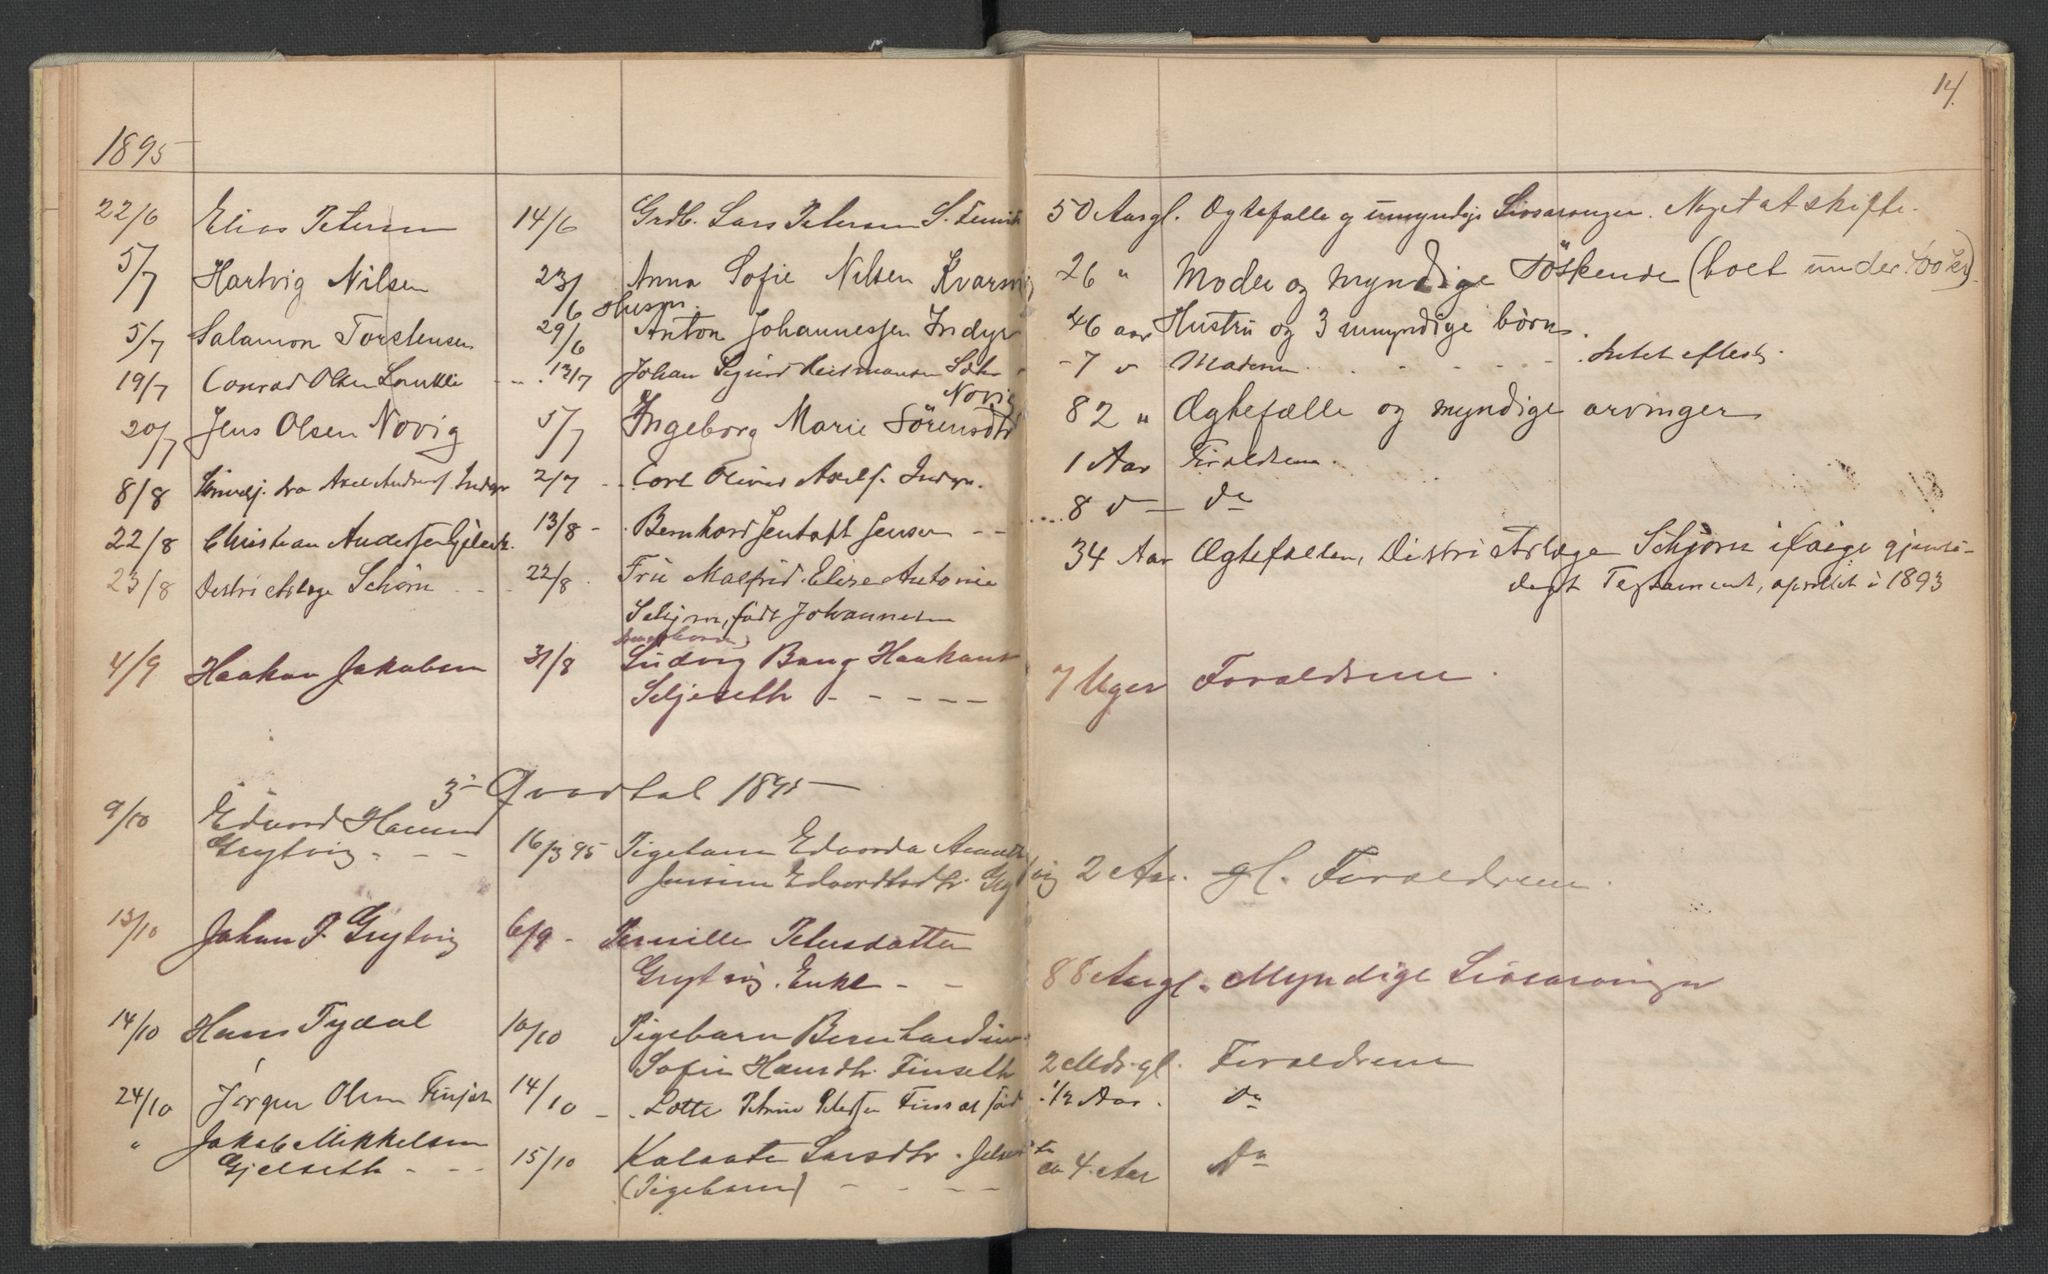 14.
1895
22/6 Elias Petersen 14/6 Grdb. Lars Petersen S. 50 Aargl. Ægtefælle og umyndige Livsarvinger. Noget at skifte.
5/7 Hartvig Nilsen 23/6 Anna Sofie Nilsen Kvarsn 26 " Moder og myndige Söskende (boet under 400 kr).
5/7 Salamon Torstensen 29/6 Husm. Anton Johannessen Indyr 46 aar Hustru og 3 umyndige börn.
19/7 Conrad Olsen 13/7 Johan Sigurd 7 " Moderen - - - Intet efterl.
20/7 Jens Olsen Novig 5/7 Ingeborg Marie Sörensdtr Novig 82 " Ægtefælle og myndige arvinger
8/8 Axel Anders. Indyr 2/7 - Carl Oliver Axels. Indyr. 1 Aar Forældrene.
22/8 Christian Anders. 13/8 - Bernhard Jentoft Jensen - - 8 " - Do
23/8 Districtslæge Schjörn - - 22/8. Fru Malfrid Elise Antonie 34 Aar Ægtefællen, Districtslæge Schjörn ifölge gjensi-
Schjörn, född Johannesen
digt Testament, oprettet i 1893
4/9 Haakon Jakobsen 31/8 Ludvig Bang Haakons 7 Uger Forældrene.
Seljeseth - - - - -
3die Qvartal 1895
9/10 Edvard Hansen
Grytvig - - - 16/3 95 Pigebarn Edvarda
Jensine Edvardsdtr. Grytvig 2 Aar. gl. Forældrene.
13/10 Johan P. Grytvig 6/9 - Pernille Petersdatter
Grytvig. Enke - - 88 Aargl. Myndige Livsarvinger
14/10 Hans Tydal 10/10 Pigebarn Bernhardine
Sofie Hansdtr. Finseth 2 Mds. gl. Forældrene
24/10 Jörgen Olsen 14/10 - Lotte Petrine 1/2 Aar. Do
" Jakob Mikkelsen
Gjelseth - - - 15/10 Larsdtr. ca 4 Aar Do
(Pigebarn) - - - -